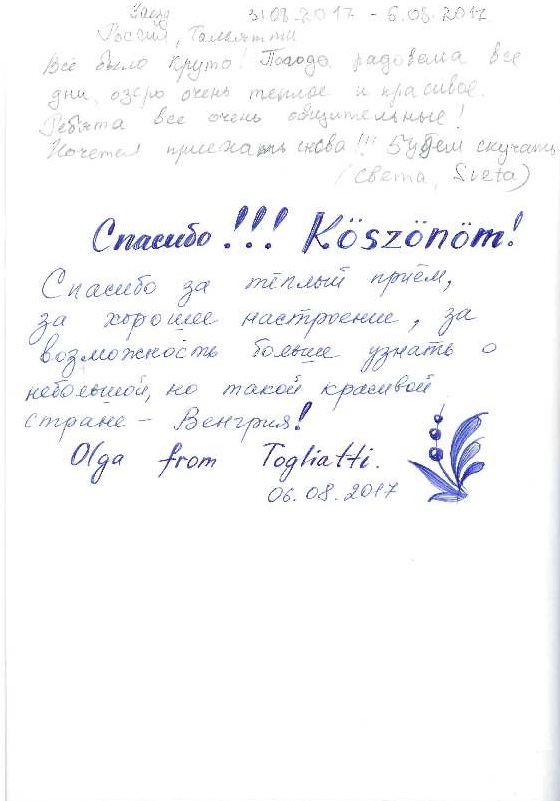 Заезд 31.08.2017 - 6.08.2017
Россия, Тольятти
Всё было круто! Погода радовала все
дни, озеро очень теплое и красивое.
Ребята все очень общительные!
Хочется приехать снова!!! Будем скучать
(Света, Sveta)
Спасибо!!! Köszönöm!
Спасибо за тёплый приём,
за хорошее настроение, за
возможность больше узнать о
небольшой, но такой красивой
стране - Венгрия!
Olga from Togliatti.
06.08.2017